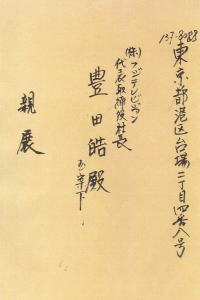 137-8088
東京都港区台場二丁目四番八号
(株)フジテレビジョン
代表取締役社長
豊田皓殿
親展